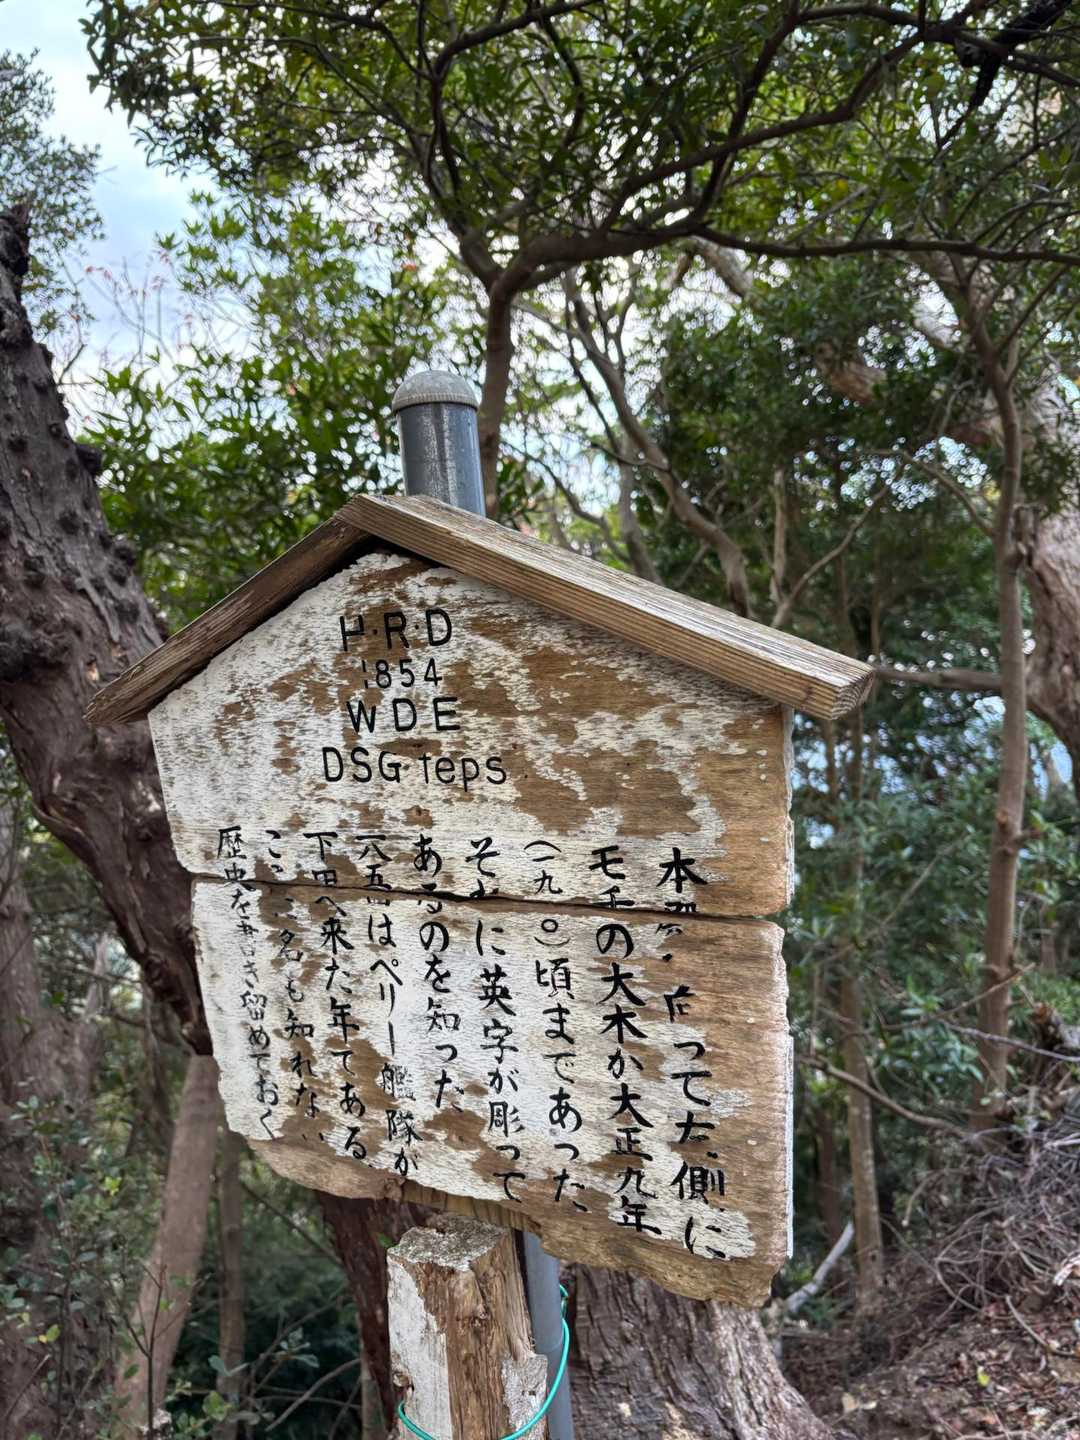 H・R・D
1854
WDE
DSG teps
本 向って右側に
モチの大木か大正九年
(一九二〇)頃まであった
それに英字が彫って
あるのを知った
一八五四はペリー艦隊が
下田へ来た年てある
ここに名も知れない
歴史を書き留めておく